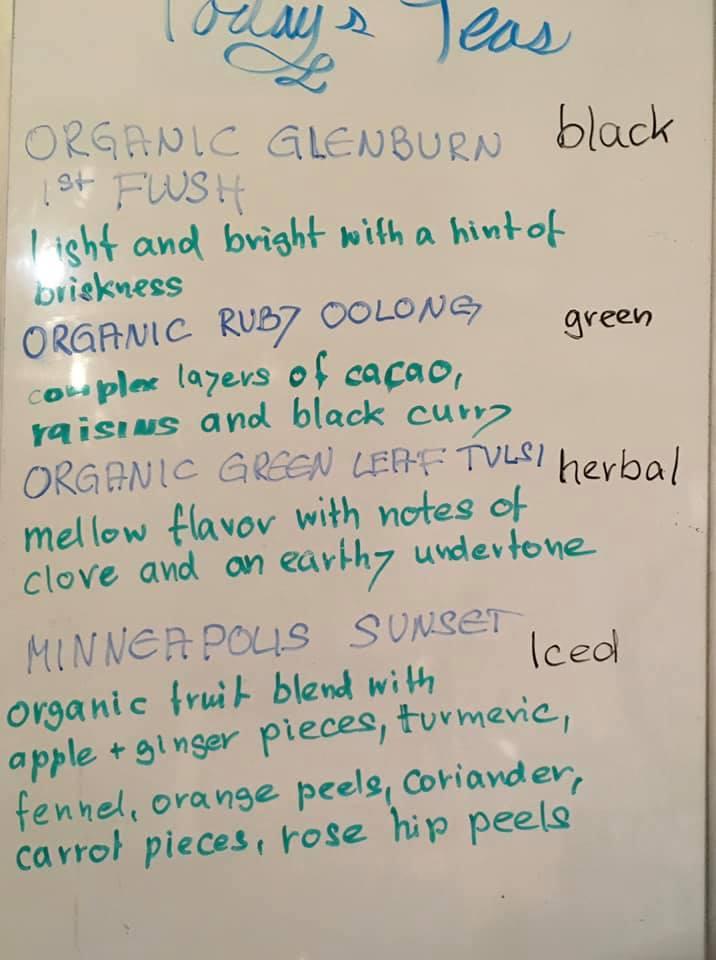 Today's Teas
ORGANIC GLENBURN black
1st FLUSH
Light and bright with a hint of
briskness
ORGANIC RUBY OOLONG green
complex layers of cacao,
raisins and black curry
ORGANIC GREEN LEAF TULSI herbal
mellow flavor with notes of
clove and an earthy undertone
MINNEAPOLIS SUNSET Iced
organic fruit blend with
apple + ginger pieces, turmeric,
fennel, orange peels, coriander,
carrot pieces, rose hip peels